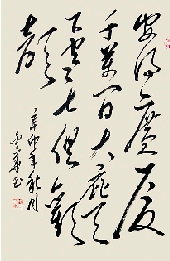 安得廣廈
千萬間大庇天
下寒士俱歡
顏
辛卯年秋月